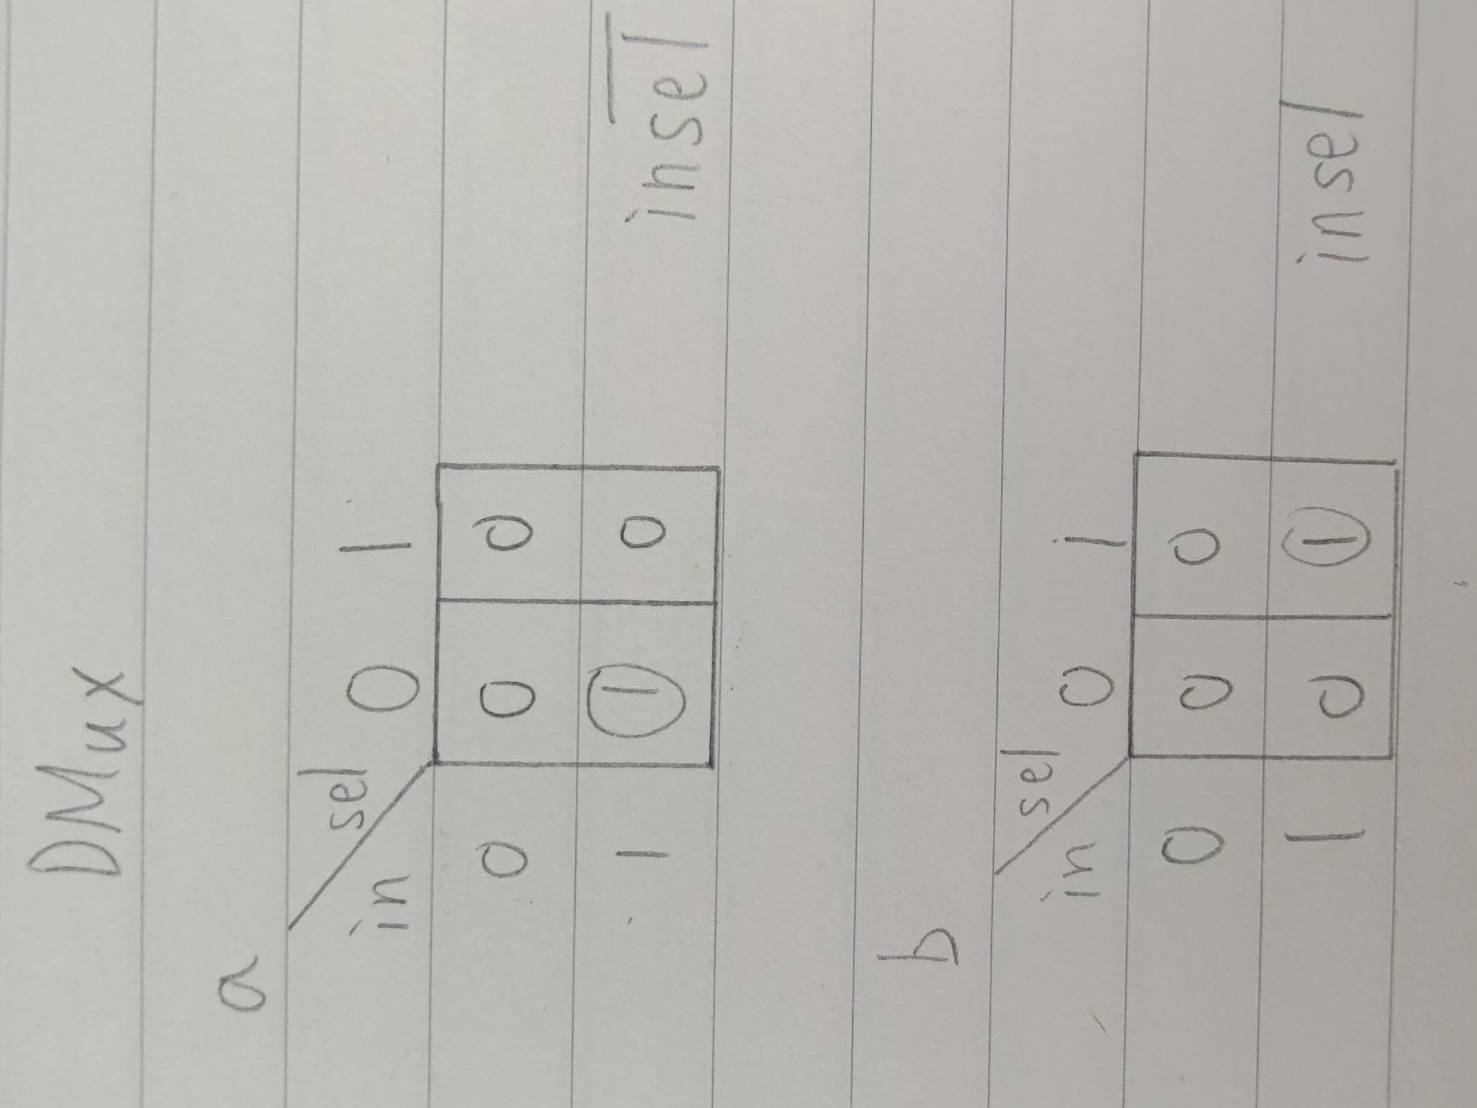 DMux
a
sel
in 0 1
0 0 0
1 1 0 in\overline{sel}
b
sel
in 0 1
0 0 0
1 0 1 insel